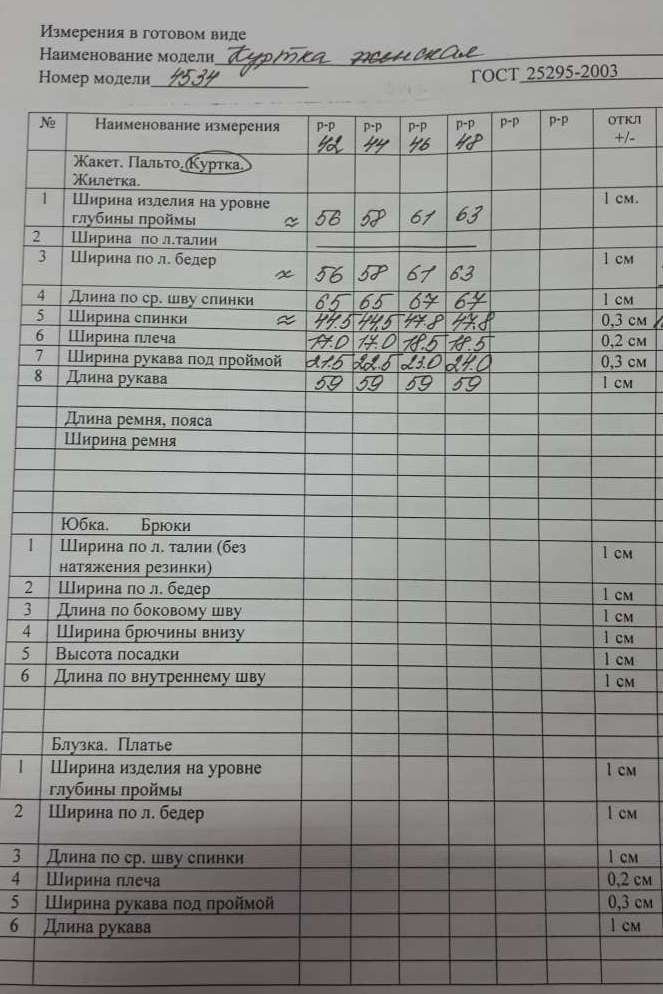 Измерения в готовом виде
Наименование модели Куртка женская
Номер модели 4534 ГОСТ 25295-2003
№ Наименование измерения р-р 42 р-р 44 р-р 46 р-р 48 р-р р-р откл +/-
Жакет. Пальто. Куртка.
Жилетка.
1 Ширина изделия на уровне глубины проймы ≈ 56 58 61 63 1 см.
2 Ширина по л.талии
3 Ширина по л. бедер ≈ 56 58 61 63 1 см
4 Длина по ср. шву спинки 65 65 67 67 1 см
5 Ширина спинки ≈ 44.5 44.5 47.8 47.8 0,3 см
6 Ширина плеча 17.0 17.0 18.5 18.5 0,2 см
7 Ширина рукава под проймой 21.5 22.5 23.0 24.0 0,3 см
8 Длина рукава 59 59 59 59 1 см
Длина ремня, пояса
Ширина ремня
Юбка. Брюки
1 Ширина по л. талии (без натяжения резинки) 1 см
2 Ширина по л. бедер 1 см
3 Длина по боковому шву 1 см
4 Ширина брючины внизу 1 см
5 Высота посадки 1 см
6 Длина по внутреннему шву 1 см
Блузка. Платье
1 Ширина изделия на уровне глубины проймы 1 см
2 Ширина по л. бедер 1 см
3 Длина по ср. шву спинки 1 см
4 Ширина плеча 0,2 см
5 Ширина рукава под проймой 0,3 см
6 Длина рукава 1 см